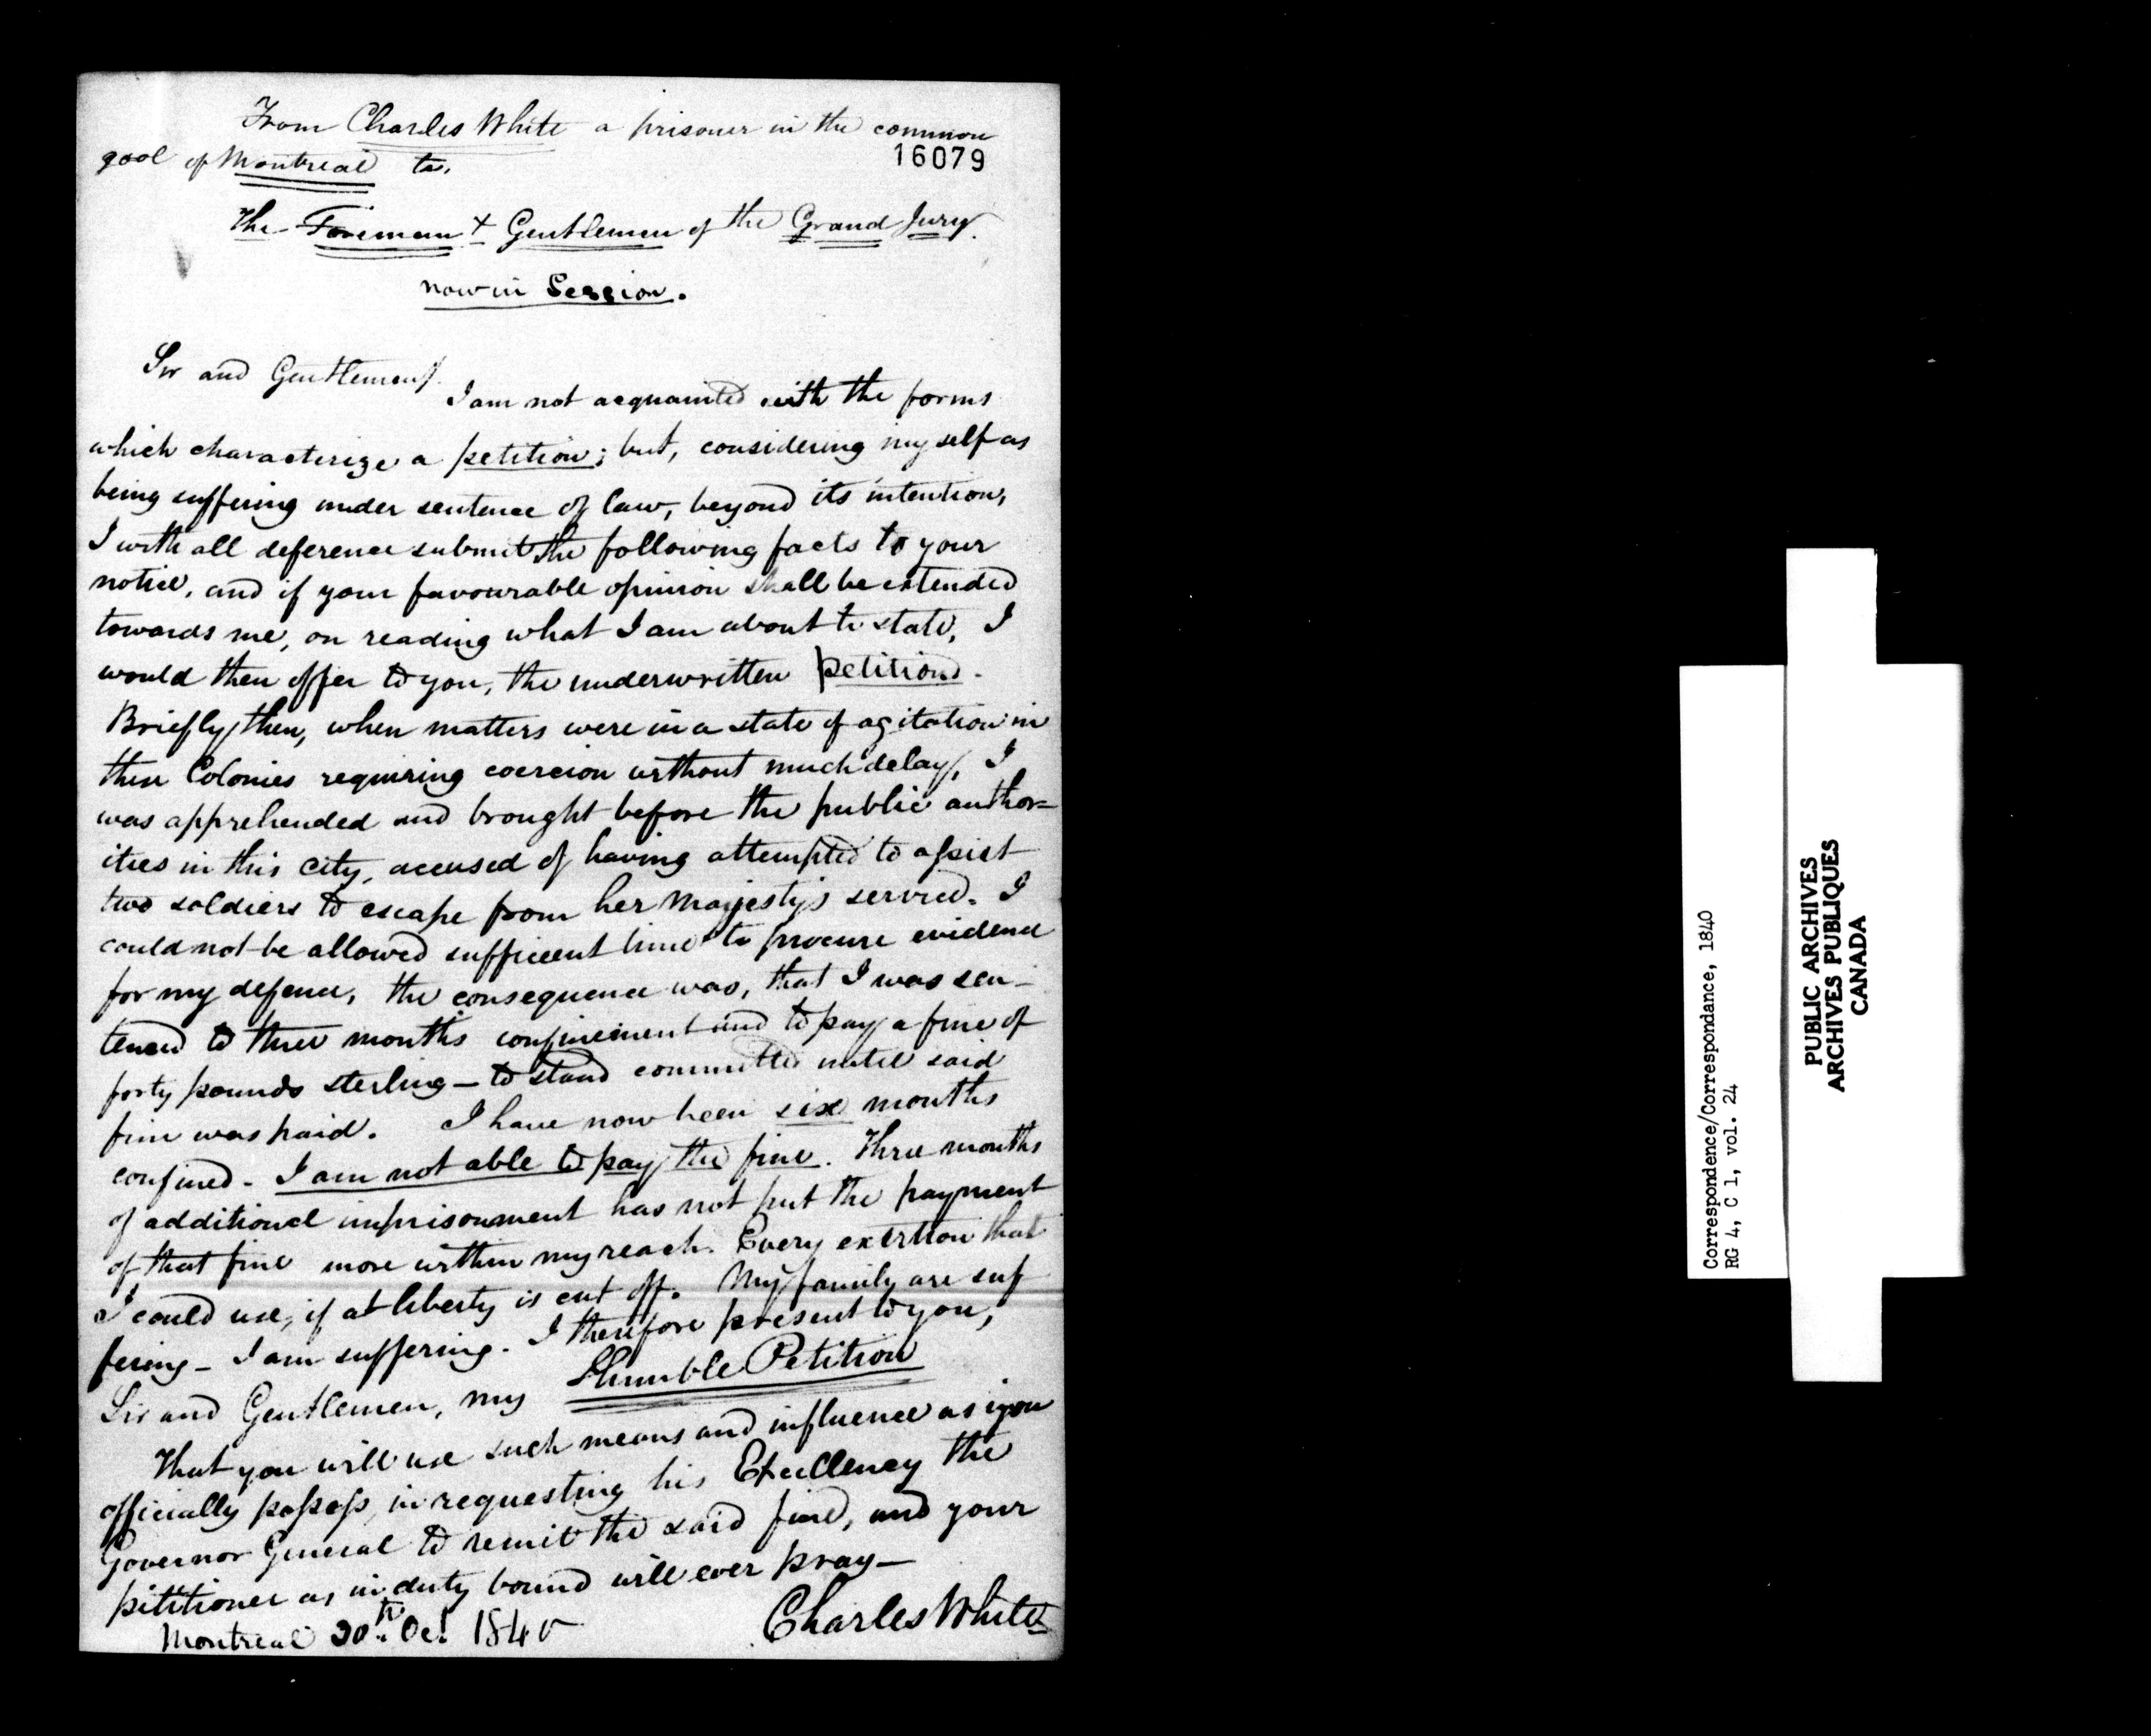 From Charles White a prisoner in the common
16079
gaol of Montreal to.
The Foreman & Gentlemen of the Grand Jury.
now in Session.
Sir and Gentlemen.
I am not acquainted with the forms
which characterize a petition; but, considering myself as
being suffering under sentence of law, beyond its intention,
I with all deference submit the following facts to your
notice, and if your favourable opinion shall be extended
towards me, on reading what I am about to state, I
would then offer to you, the underwritten petition.
Briefly then, when matters were in a state of agitation in
these Colonies requiring coercion without much delay, I
was apprehended and brought before the public author=
ities in this city, accused of having attempted to assist
two soldiers to escape from her Majesty's service. I
could not be allowed sufficient time to procure evidence
for my defence, the consequence was, that I was sen-
tenced to three months confinement and to pay a fine of
forty pounds sterling — to stand committed until said
fine was paid. I have now been six months
confined - I am not able to pay the fine. Three months
of additional imprisonment has not put the payment
of that fine more within my reach. Every exertion that
I could use, if at liberty is cut off. My family are suf
fering - I am suffering. I therefore present to you,
Sir and Gentlemen, my Humble Petition
That you will use such means and influence as you
officially possess, in requesting his Excellency the
Governor General to remit the said fine, and your
petitioner as in duty bound will ever pray —
Montreal 30th. Oct. 1840
Charles White
Correspondence/Correspondance, 1840
RG 4, C 1, vol. 24
PUBLIC ARCHIVES
ARCHIVES PUBLIQUES
CANADA